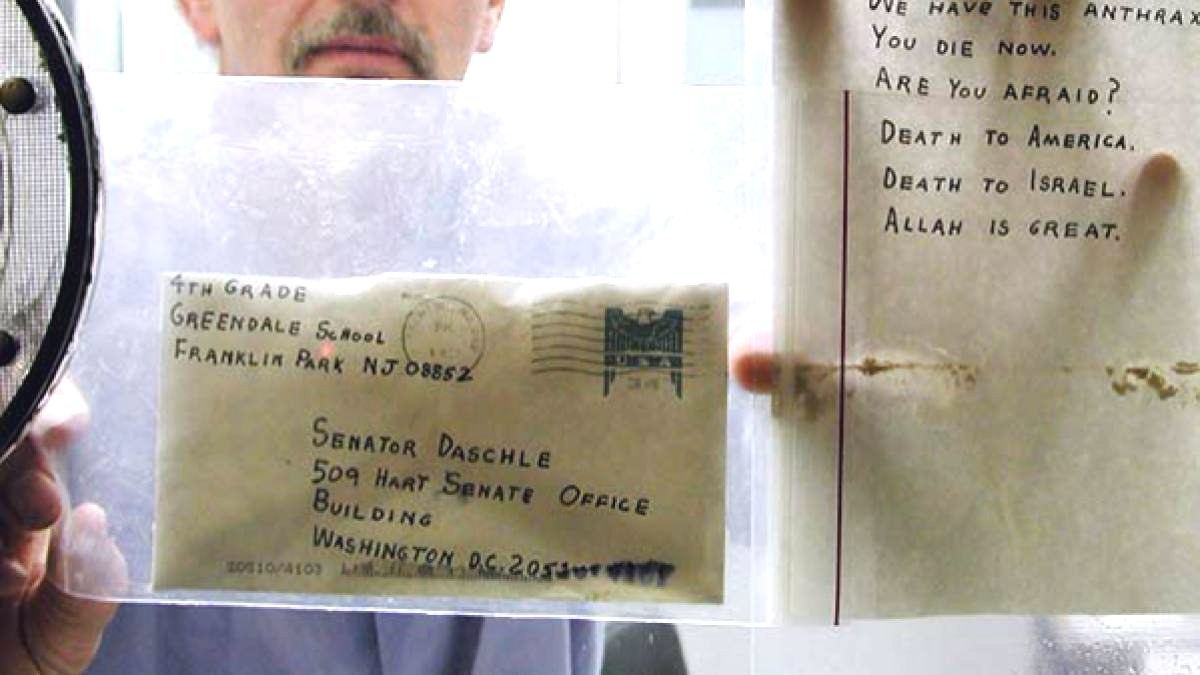 4TH GRADE
GREENDALE SCHOOL
FRANKLIN PARK NJ 08852
USA
SENATOR DASCHLE
509 HART SENATE OFFICE
BUILDING
WASHINGTON D.C. 2051
20510/4103
WE HAVE THIS ANTHRAX
YOU DIE NOW.
ARE YOU AFRAID?
DEATH TO AMERICA.
DEATH TO ISRAEL.
ALLAH IS GREAT.